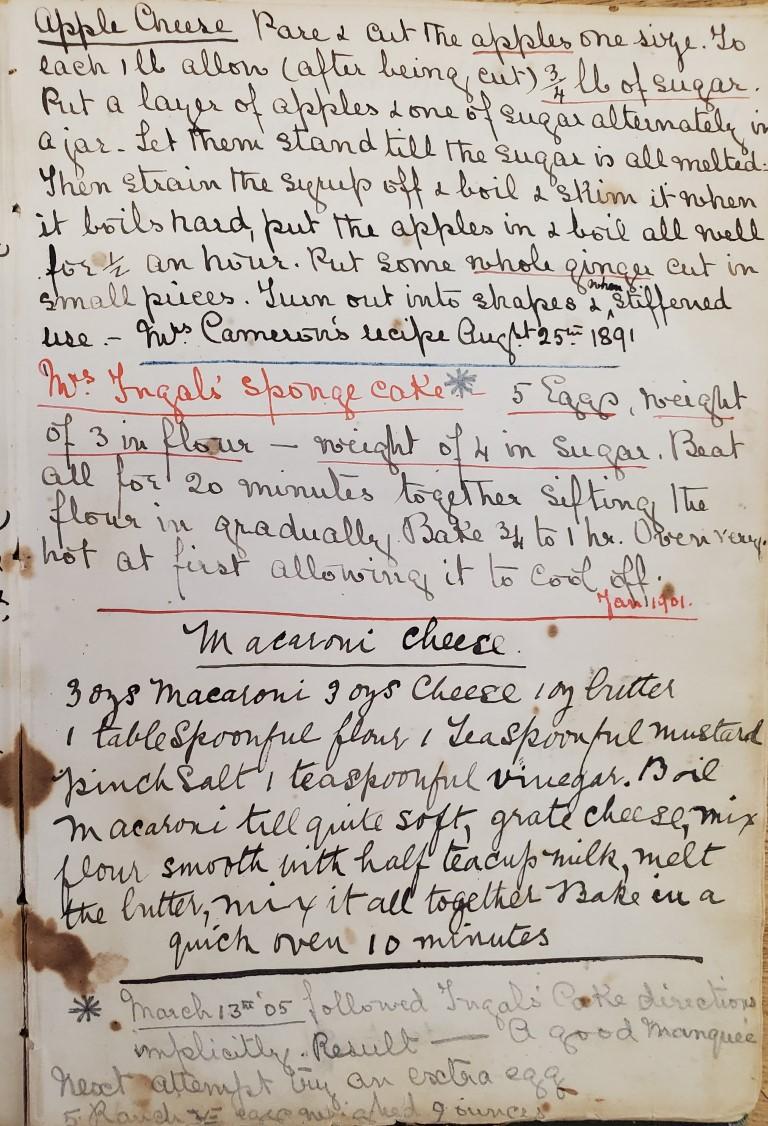 Apple Cheese Pare & cut the apples one size. To
each 1 lb allow (after being cut) 3/4 lb of sugar.
Put a layer of apples & one of sugar alternately in
a jar - Let them stand till the sugar is all melted.
Then strain the syrup off & boil & skim it when
it boils hard, put the apples in & boil all well
for 1/2 an hour. Put some whole ginger cut in
small pieces. Turn out into shapes & when stiffened
use. - Mrs Cameron's recipe Augt 25th 1891
Mrs Ingals' Sponge cake * 5 Eggs, weight
of 3 in flour - weight of 4 in Sugar. Beat
all for 20 minutes together sifting the
flour in gradually. Bake 3/4 to 1 hr. Oven very
hot at first allowing it to cool off.
Jan 1901.
Macaroni cheese.
3 ozs Macaroni 3 ozs Cheese 1 oz butter
1 tableSpoonful flour 1 Teaspoonful mustard
pinch Salt 1 teaspoonful vinegar. Boil
macaroni till quite soft, grate cheese, mix
flour smooth with half teacup milk, melt
the butter, mix it all together Bake in a
quick oven 10 minutes
* March 13th '05 followed Ingals' Cake directions
implicitly. Result — A good Manquée
Next attempt try an extra egg
5 Ranch eggs weighed 9 ounces